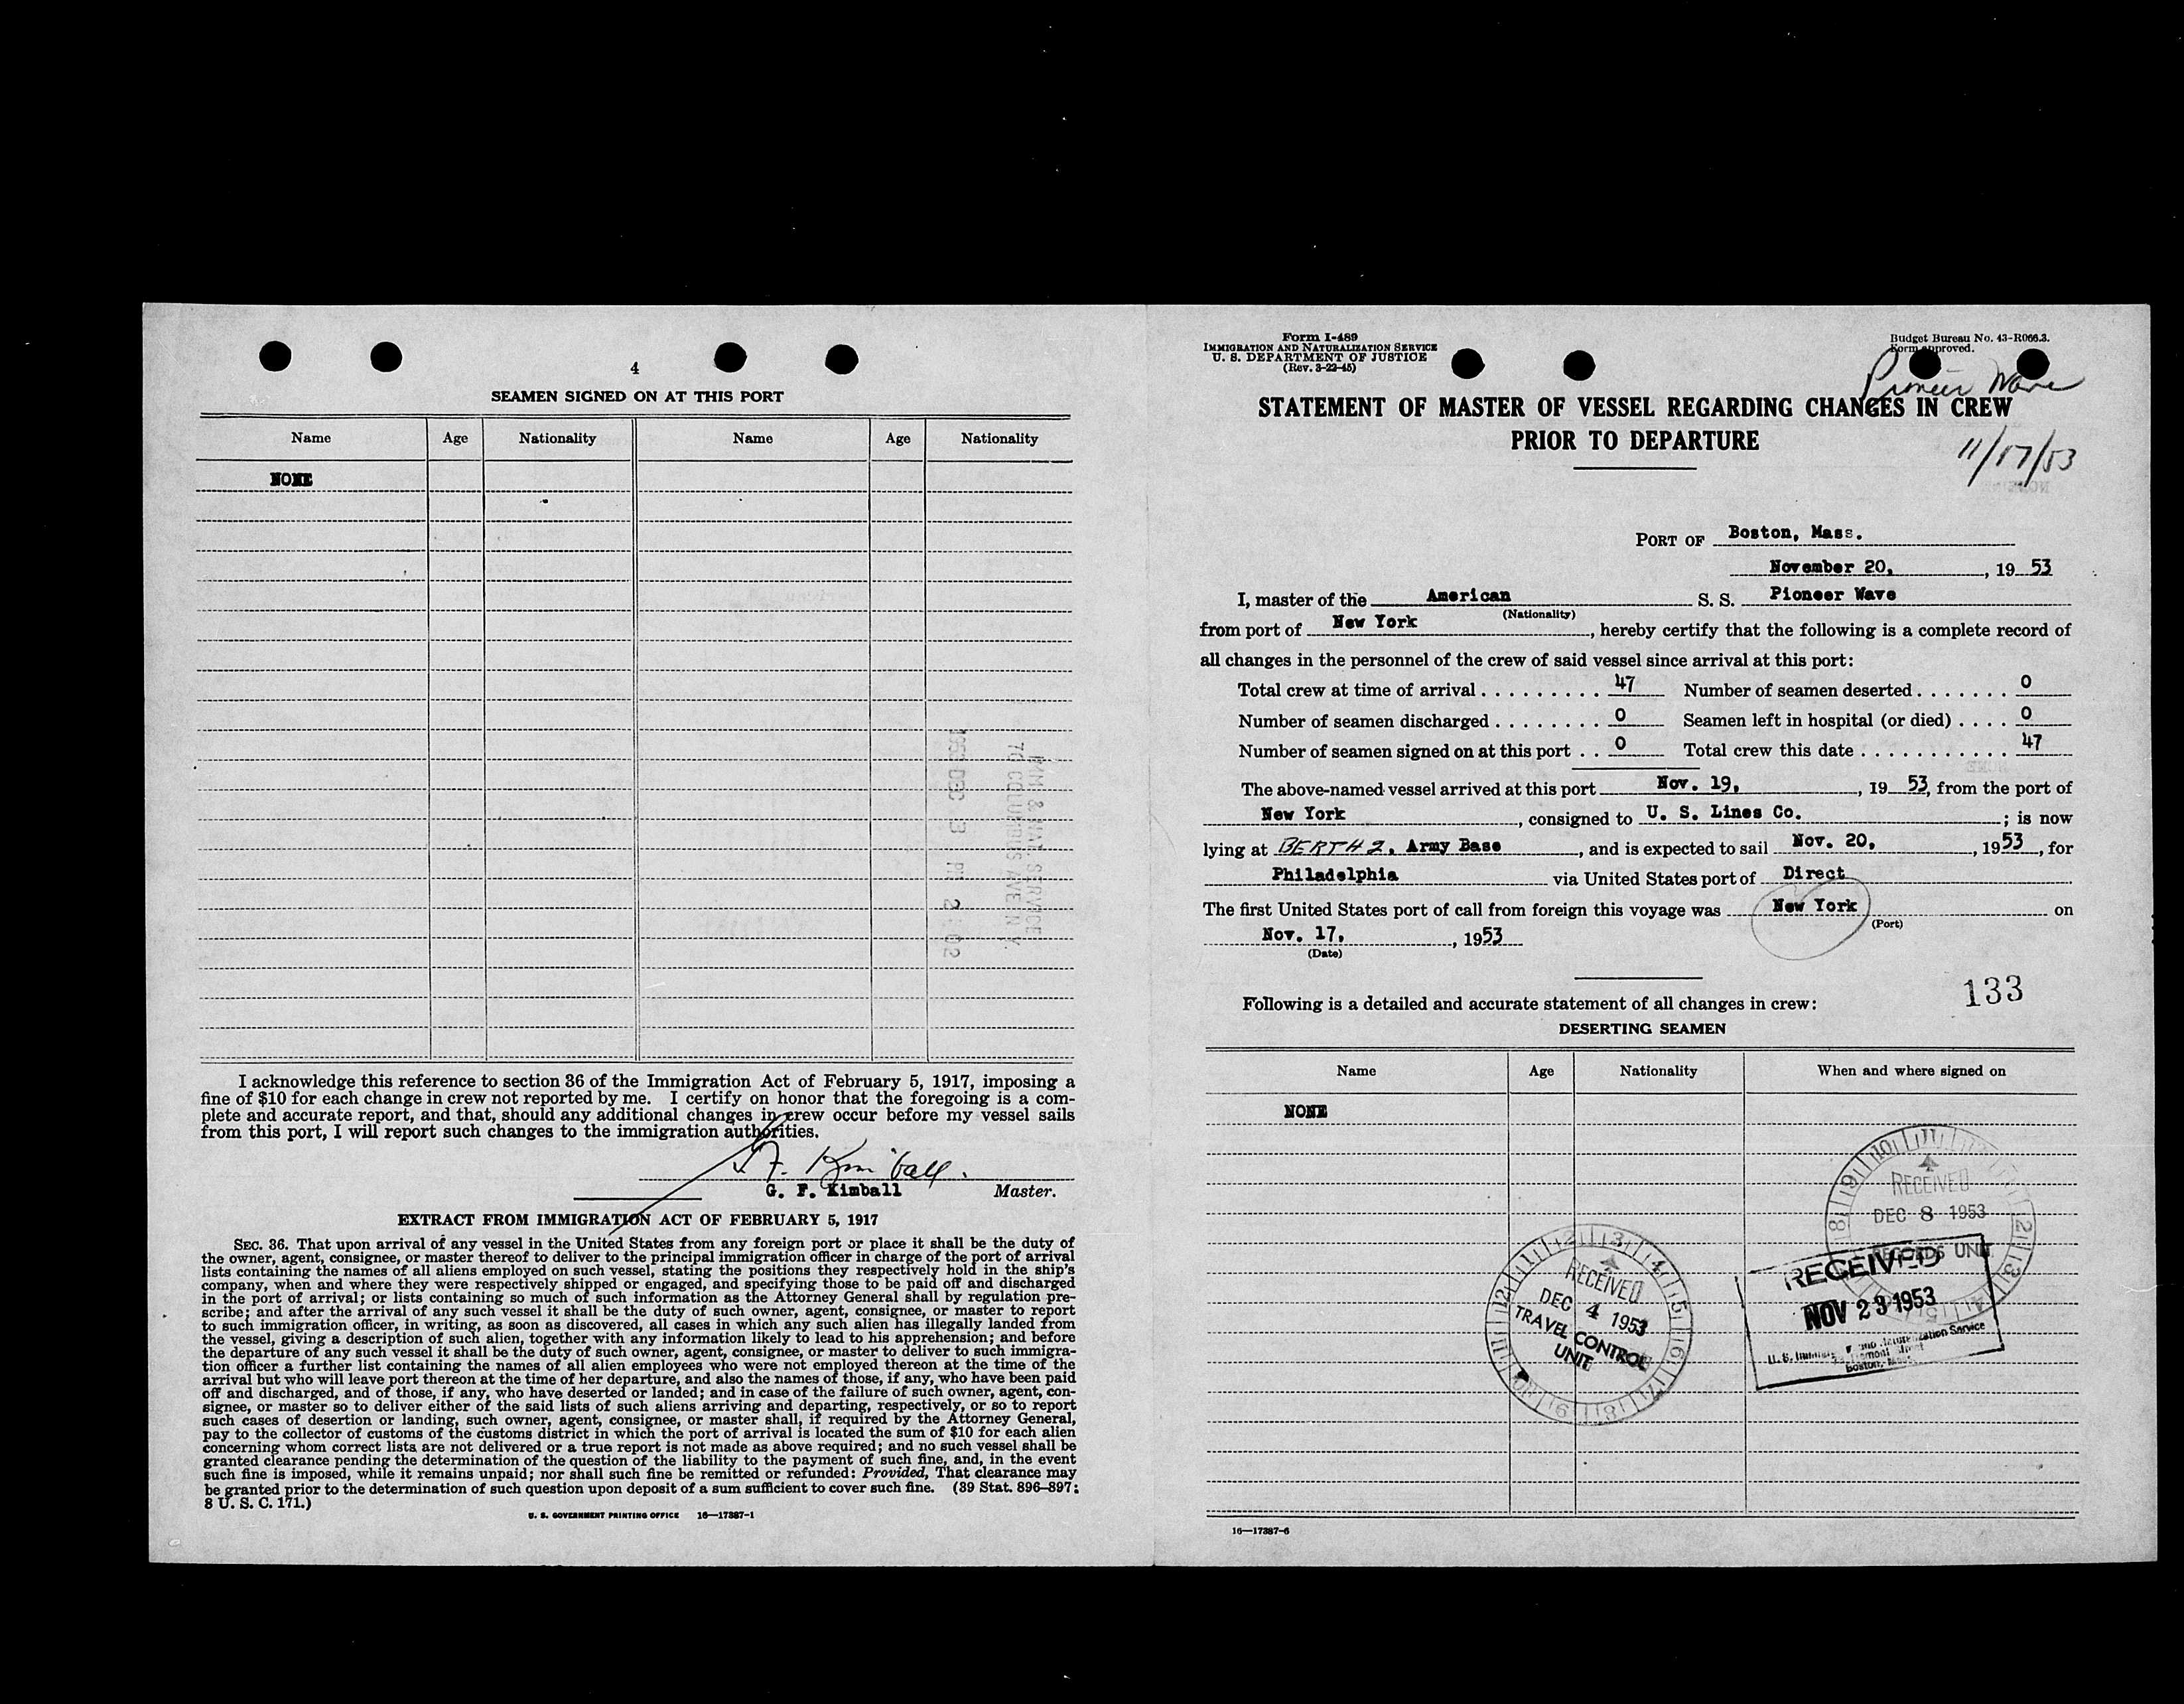 4
SEAMEN SIGNED ON AT THIS PORT
Name Age Nationality Name Age Nationality
NONE
I acknowledge this reference to section 36 of the Immigration Act of February 5, 1917, imposing a
fine of $10 for each change in crew not reported by me. I certify on honor that the foregoing is a com-
plete and accurate report, and that, should any additional changes in crew occur before my vessel sails
from this port, I will report such changes to the immigration authorities.
G. F. Kimball Master.
EXTRACT FROM IMMIGRATION ACT OF FEBRUARY 5, 1917
SEC. 36. That upon arrival of any vessel in the United States from any foreign port or place it shall be the duty of
the owner, agent, consignee, or master thereof to deliver to the principal immigration officer in charge of the port of arrival
lists containing the names of all aliens employed on such vessel, stating the positions they respectively hold in the ship's
company, when and where they were respectively shipped or engaged, and specifying those to be paid off and discharged
in the port of arrival; or lists containing so much of such information as the Attorney General shall by regulation pre-
scribe; and after the arrival of any such vessel it shall be the duty of such owner, agent, consignee, or master to report
to such immigration officer, in writing, as soon as discovered, all cases in which any such alien has illegally landed from
the vessel, giving a description of such alien, together with any information likely to lead to his apprehension; and before
the departure of any such vessel it shall be the duty of such owner, agent, consignee, or master to deliver to such immigra-
tion officer a further list containing the names of all alien employees who were not employed thereon at the time of the
arrival but who will leave port thereon at the time of her departure, and also the names of those, if any, who have been paid
off and discharged, and of those, if any, who have deserted or landed; and in case of the failure of such owner, agent, con-
signee, or master so to deliver either of the said lists of such aliens arriving and departing, respectively, or so to report
such cases of desertion or landing, such owner, agent, consignee, or master shall, if required by the Attorney General,
pay to the collector of customs of the customs district in which the port of arrival is located the sum of $10 for each alien
concerning whom correct lists are not delivered or a true report is not made as above required; and no such vessel shall be
granted clearance pending the determination of the question of the liability to the payment of such fine, and, in the event
such fine is imposed, while it remains unpaid; nor shall such fine be remitted or refunded: Provided, That clearance may
be granted prior to the determination of such question upon deposit of a sum sufficient to cover such fine. (39 Stat. 896–897;
8 U. S. C. 171.)
U. S. GOVERNMENT PRINTING OFFICE 16—17387-1
Form I-489
IMMIGRATION AND NATURALIZATION SERVICE
U. S. DEPARTMENT OF JUSTICE
(Rev. 3-22-45)
Budget Bureau No. 43-R066.3.
Form approved.
Pioneer Wave
STATEMENT OF MASTER OF VESSEL REGARDING CHANGES IN CREW
PRIOR TO DEPARTURE
11/17/53
PORT OF Boston, Mass.
November 20, , 19 53
I, master of the American S. S. Pioneer Wave
(Nationality)
from port of New York , hereby certify that the following is a complete record of
all changes in the personnel of the crew of said vessel since arrival at this port:
Total crew at time of arrival . . . . . . . . . 47 Number of seamen deserted . . . . . . . 0
Number of seamen discharged . . . . . . . . 0 Seamen left in hospital (or died) . . . . 0
Number of seamen signed on at this port . . 0 Total crew this date . . . . . . . . . . . 47
The above-named vessel arrived at this port Nov. 19, , 19 53, from the port of
New York , consigned to U. S. Lines Co. ; is now
lying at BERTH 2, Army Base , and is expected to sail Nov. 20, , 1953 , for
Philadelphia via United States port of Direct
The first United States port of call from foreign this voyage was New York on
(Port)
Nov. 17, , 1953
(Date)
133
Following is a detailed and accurate statement of all changes in crew:
DESERTING SEAMEN
Name Age Nationality When and where signed on
NONE
RECEIVED
DEC 8 1953
RECORDS UNIT
RECEIVED
DEC 4 1953
TRAVEL CONTROL
UNIT
RECEIVED
NOV 23 1953
Boston, Mass.
16—17387-6